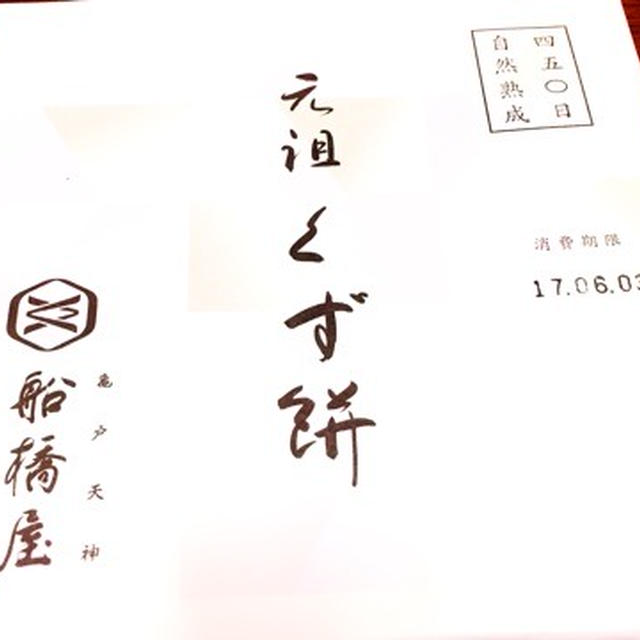 四五〇日
自然熟成
消費期限
17.06.03
元祖くず餅
亀戸天神
船橋屋